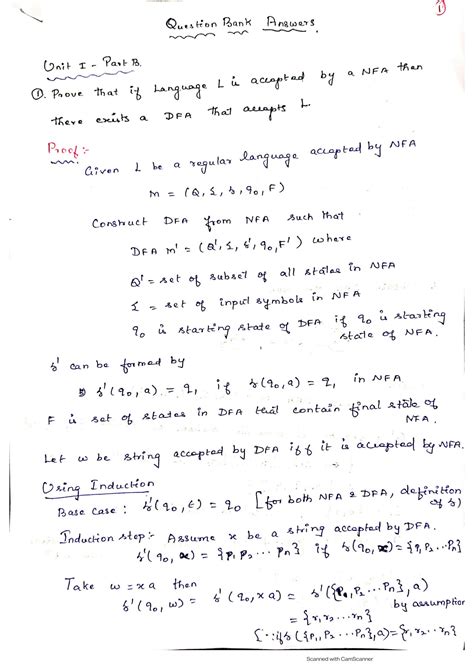 1
Question Bank Answers.
Unit I - Part B.
① Prove that if Language L is accepted by a NFA then
there exists a DFA that accepts L
Proof :-
Given L be a regular language accepted by NFA
M = (Q, Σ, δ, q₀, F)
Construct DFA from NFA such that
DFA M' = (Q', Σ, δ', q₀, F') where
Q' = set of subset of all states in NFA
Σ = set of input symbols in NFA
q₀ is starting state of DFA if q₀ is starting
state of NFA.
δ' can be formed by
δ'(q₀, a) = q, if δ(q₀, a) = q, in NFA
F is set of states in DFA that contain final state of
NFA.
Let w be string accepted by DFA iff it is accepted by NFA.
Using Induction
Base case : δ'(q₀, ε) = q₀ [for both NFA & DFA, definition
of δ)
Induction step :- Assume x be a string accepted by DFA.
δ'(q₀, x) = {p₁ p₂ ... pₙ} if δ(q₀, x) = {p₁ p₂ ... pₙ}
Take w = xa then
δ'(q₀, w) = δ'(q₀, xa) = δ'({p₁, p₂ ... pₙ}, a)
by assumption
= {r₁ r₂ ... rₙ}
[∵ if δ({p₁, p₂ ... pₙ}, a) = {r₁, r₂ ... rₙ}
Scanned with CamScanner